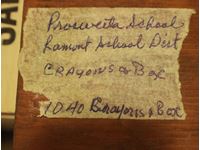 School
Lamont School Dist
CRAYONS & Box
1040 Crayons & Box